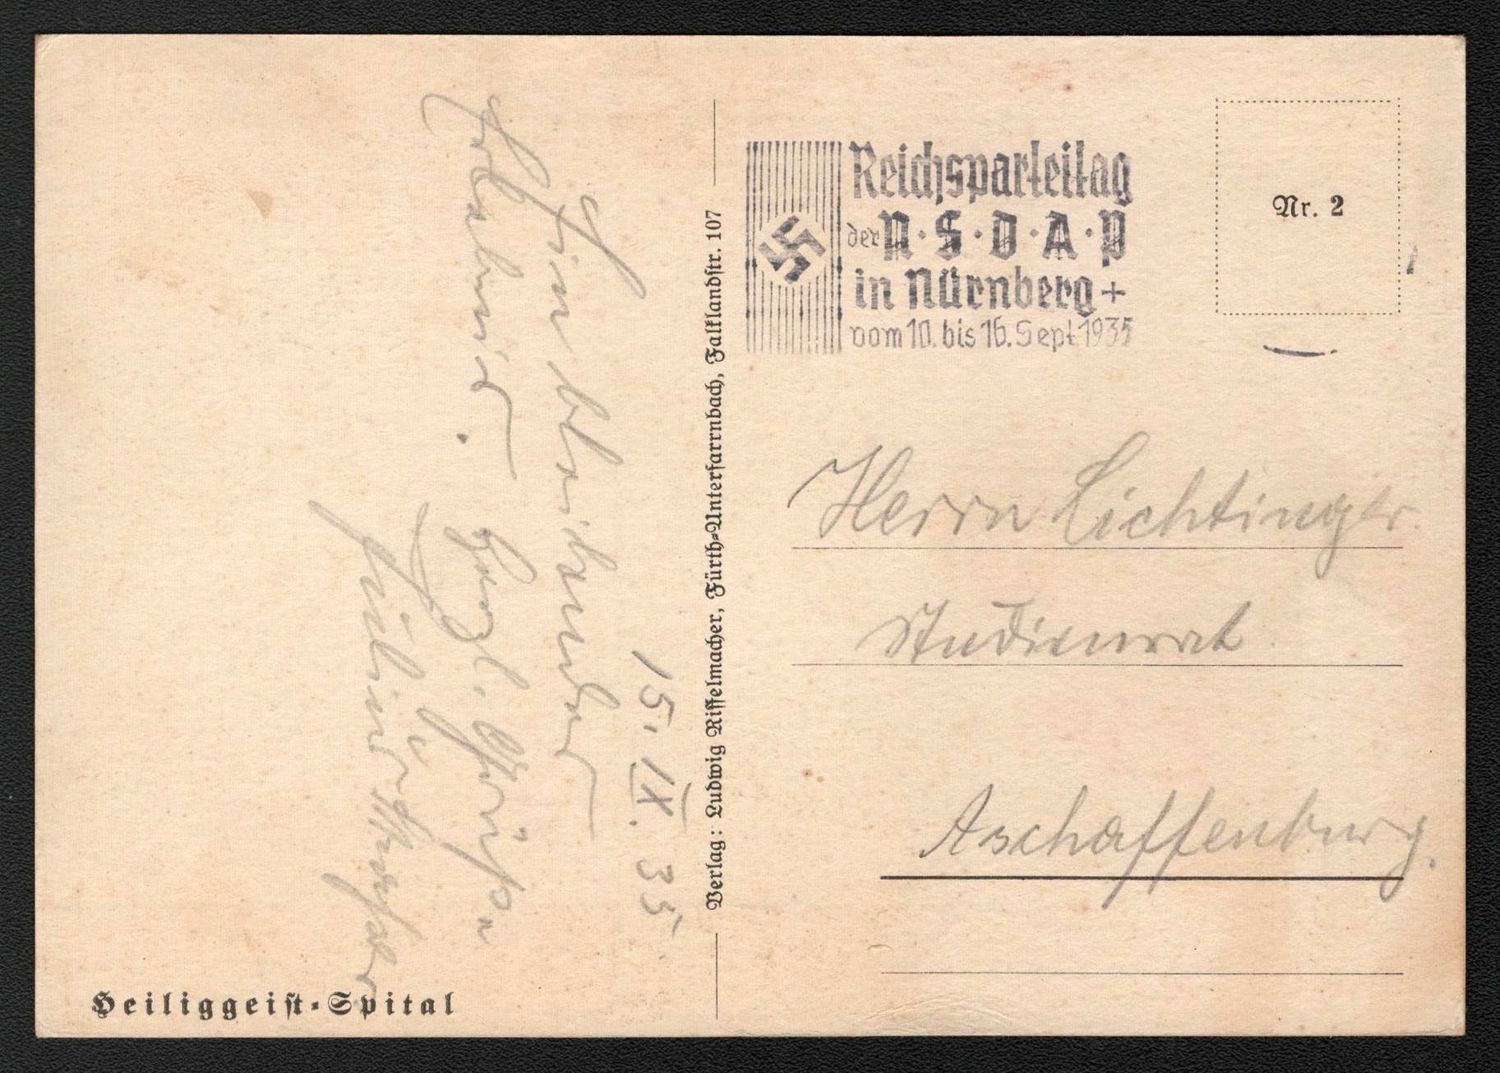 Reichsparteitag
der N·S·D·A·P
in Nürnberg +
vom 10. bis 16. Sept 1935
Nr. 2
Herrn Lichtinger
Studienrat
Aschaffenburg.
Verlag: Ludwig Riffelmacher, Fürth-Unterfarrnbach, Falklandstr. 107
15. IX. 35
Ein bleibendes
Erlebnis.
Herzl. Grüße
Heiliggeist-Spital